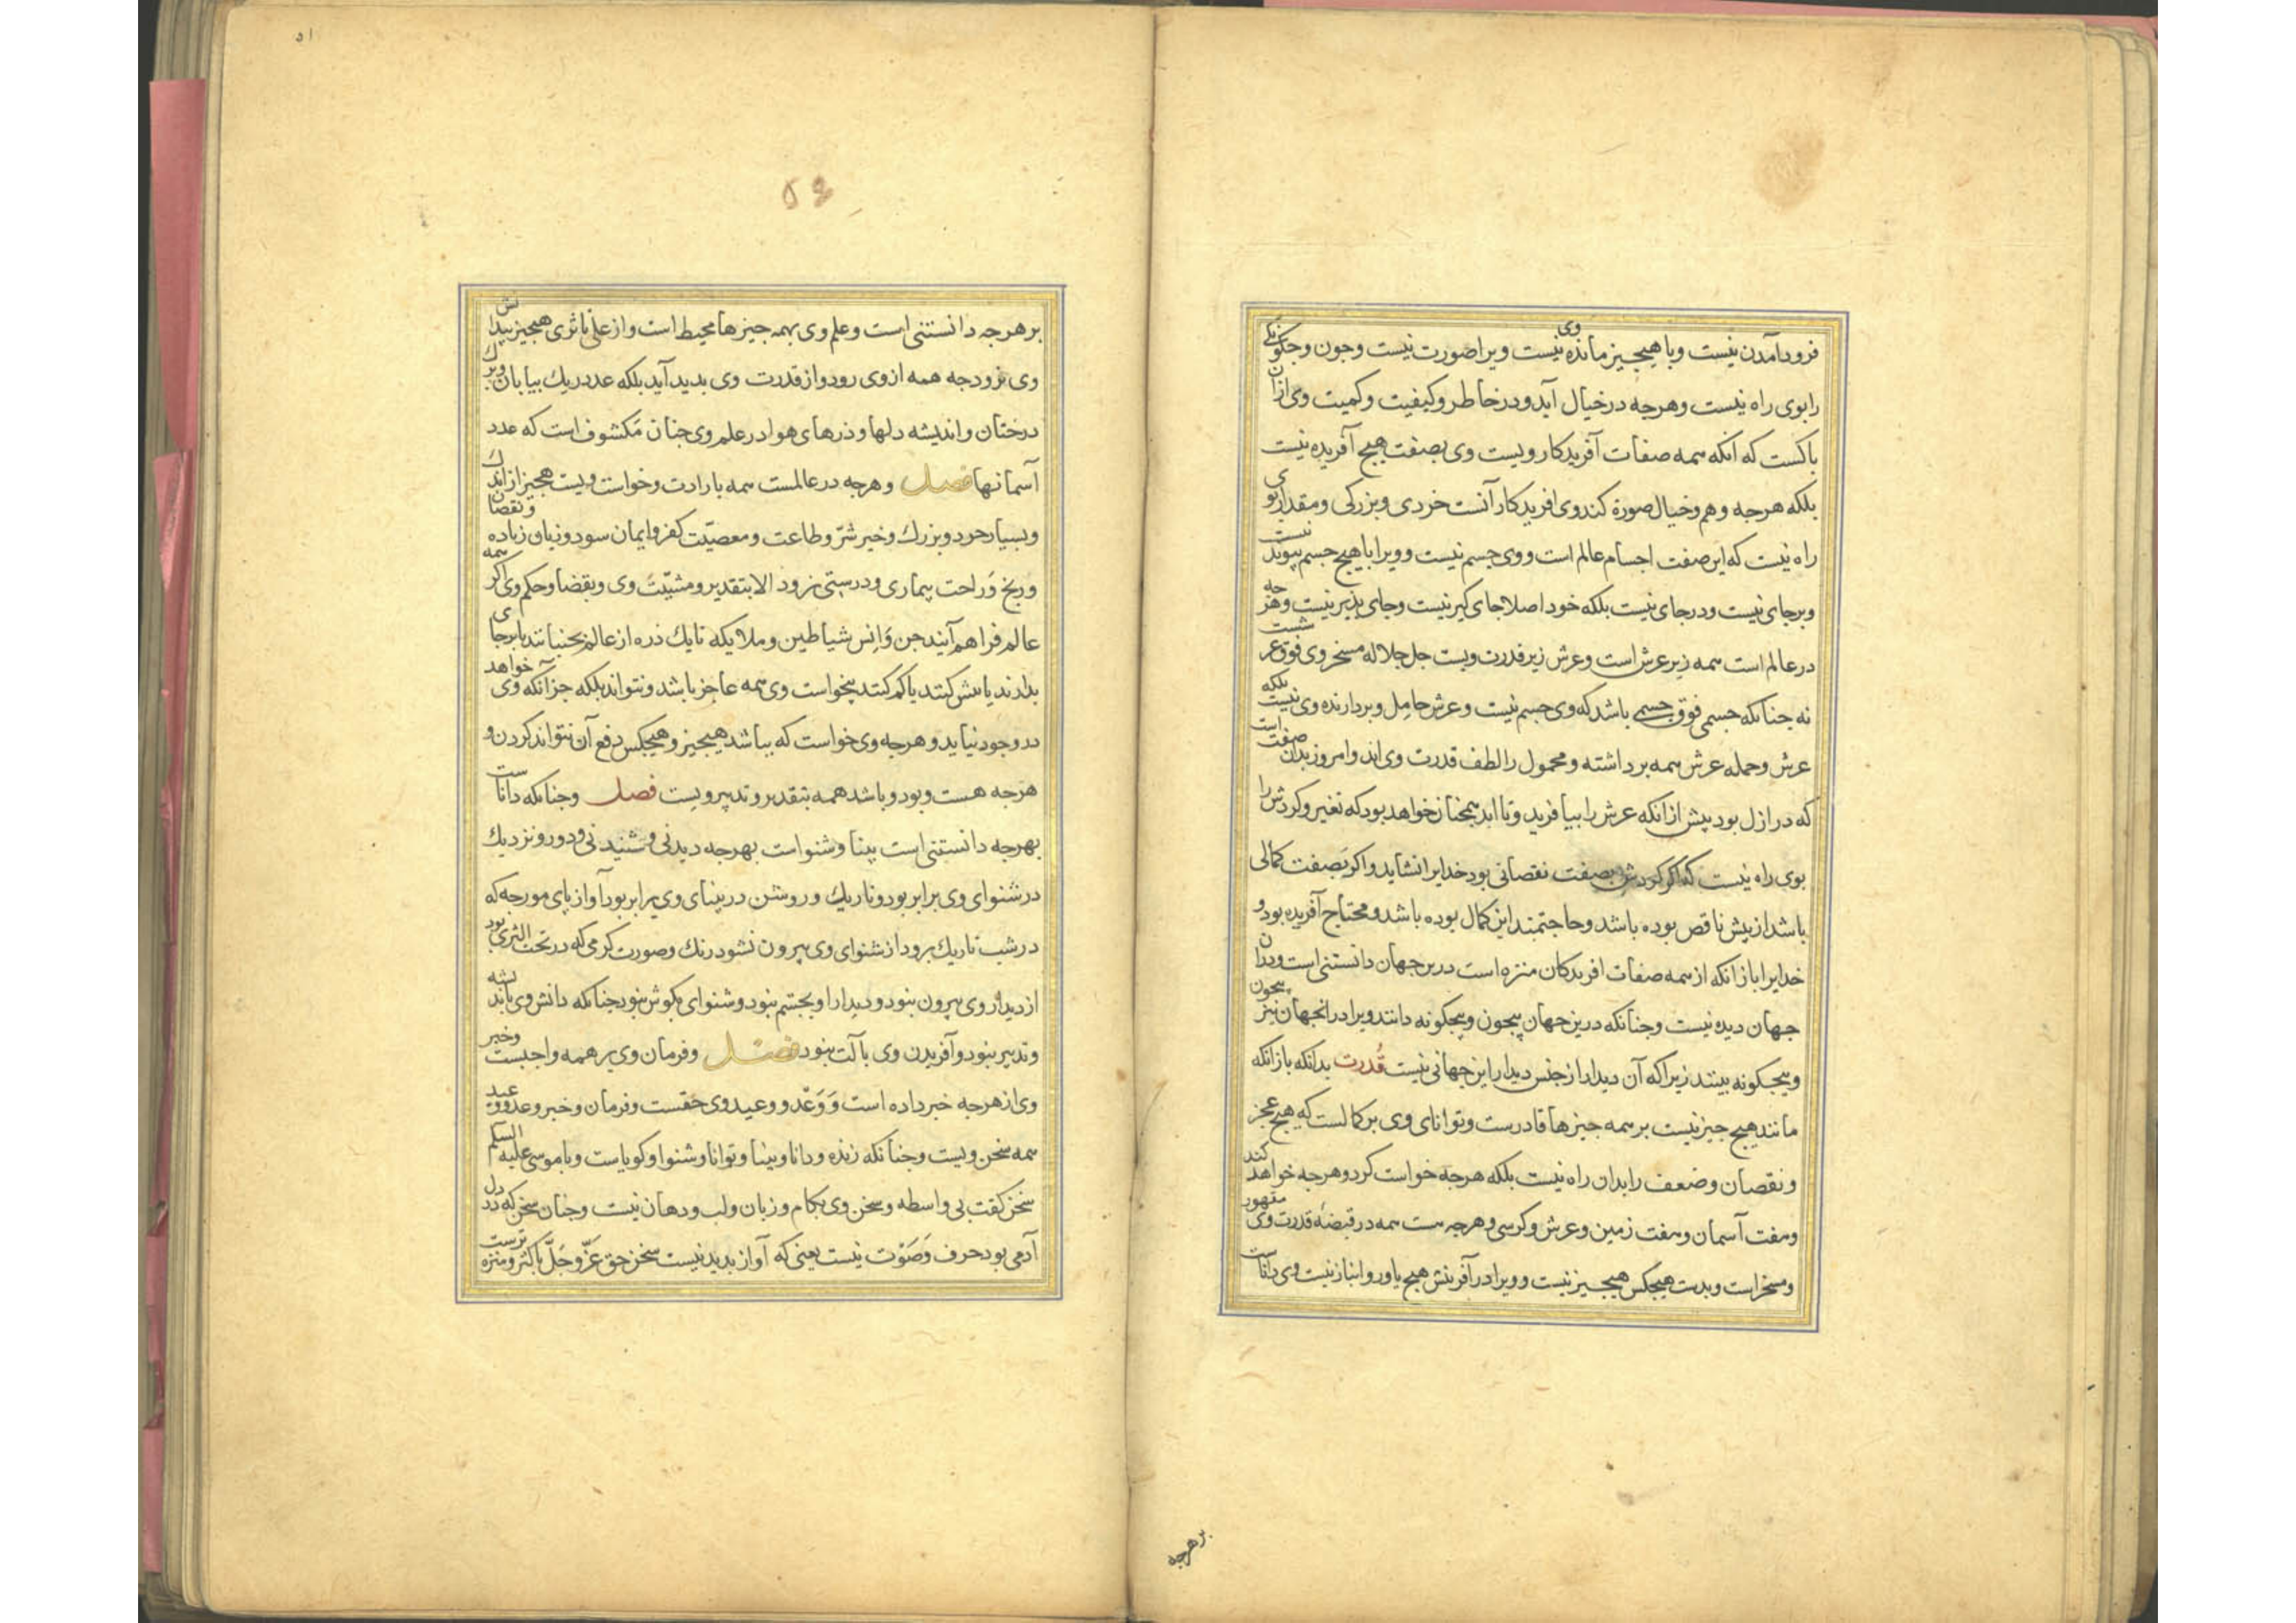 فرود آمدن نیست و با هیچیز ماننده نیست ویرا صورت نیست وجون وجکونکی
وی
را بوی راه نیست وهرجه در خیال آید ودر خاطر وکیفیت وکمیت وی ازان
باکست که آنکه همه صفات آفریدکار ویست وی بصفت هیچ آفریده نیست
بلکه هرجه وهم وخیال صورة کند وی افریدکار آنست خردی وبزرکی ومقدار بوی
راه نیست که این صفت اجسام عالم است ووی جسم نیست وویرا با هیچ جسم پیوند نیست
وبرجای نیست ودرجای نیست بلکه خود اصلا جای کیر نیست وجای پذیر نیست وهرجه
در عالم است همه زیر عرش است وعرش زیر قدرت ویست جل جلاله مسخر وی فوق عرشست
نه جنانکه جسمی فوق جسمی باشد که وی جسم نیست وعرش حامل وبردارنده وی نیست بلکه
عرش وحمله عرش همه برداشته ومحمول را لطف قدرت وی اند وامروز بدان صفت است
که در ازل بود پیش ازانکه عرش را بیافرید وتا ابد همچنان خواهد بود که تغیر وکردش را
بوی راه نیست که اکر کردش بصفت نقصانی بود خدایرا نشاید واکر بصفت کمالی
باشد از پیش ناقص بوده باشد وحاجتمند این کمال بوده باشد ومحتاج آفریده بود و
خدایرا بازانکه از همه صفات افریدکان منزه است درین جهان دانستنی است ودران
جهان دیده نیست وجنانکه درین جهان بیجون وبیجکونه دانند ویرا درانجهان نیز بیجون
وبیجکونه بینند زیراکه آن دیدار از جنس دیدار این جهانی نیست قدرت بدانکه بازانکه
مانند هیچ جیز نیست بر همه جیزها قادرست وتوانای وی بر کمالست که هیچ عجز
ونقصان وضعف را بدان راه نیست بلکه هرجه خواست کرد وهرجه خواهد کند
وهفت آسمان وهفت زمین وعرش وکرسی وهرجه هست همه در قبضهٔ قدرت وی مقهور
ومسخر است وبدست هیچکس هیچیز نیست وویرا در آفرینش هیچ یاور وانباز نیست وی داناست
بر هرجه
۵۱
بر هرجه دانستنی است وعلم وی بهمه جیزها محیط است واز علی تا ثری هیچیز بیدانش
وی نرود جه همه از وی رود واز قدرت وی بدید آید بلکه عدد ریك بیابان وبرك
درختان واندیشه دلها وذرهای هوا در علم وی جنان مکشوف است که عدد
آسمانها فصل وهرجه در عالمست همه بارادت وخواست ویست هیچیز از اندك
وبسیار خرد وبزرك وخیر شرّ وطاعت ومعصیّت کفر وایمان سود وزیان زیاده ونقصان
ورنج وَراحت بیماری ودرستی نرود الا بتقدیر ومشیّت وی وبقضا وحکم وی اکر همه
عالم فراهم آیند جن وَانس شیاطین وملایکه تا یك ذره از عالم بجنبانند یا برجای
بدارند یا بیش کنند یا کم کنند بیخواست وی همه عاجز باشد ونتواند بلکه جز آنکه وی خواهد
در وجود نیاید وهرجه وی خواست که بباشد هیچیز وهیچکس دفع آن نتواند کردن و
هرجه هست وبود وباشد همه بتقدیر وتدبیر ویست فصل وجنانکه داناست
بهرجه دانستنی است بینا وشنواست بهرجه دیدنی وشنیدنی ودور ونزدیك
در شنوای وی برابر بود وتاریك وروشن در بینای وی برابر بود آواز پای مورجه که
در شب تاریك برود از شنوای وی بیرون نشود رنك وصورت کرمی که در تحت الثری بود
از دیدار وی بیرون نبود ودیدار او بجشم نبود وشنوای بکوش نبود جنانکه دانش وی باندیشه
وتدبیر نبود وآفریدن وی بآلت نبود فصل وفرمان وی بر همه واجبست وخبر
وی از هرجه خبر داده است وَوَعْد ووعید وی حقست وفرمان وخبر وعد ووعید
همه سخن ویست وجنانکه زنده ودانا وبینا وتوانا وشنوا وکویاست وبا موسی علیه السلم
سخن کفت بی واسطه وسخن وی بکام وزبان ولب ودهان نیست وجنان سخن که در دل
آدمی بود حرف وَصَوْت نیست یعنی که آواز بدید نیست سخن حق عَزّ وجَلّ پاکتر ومنزه ترست